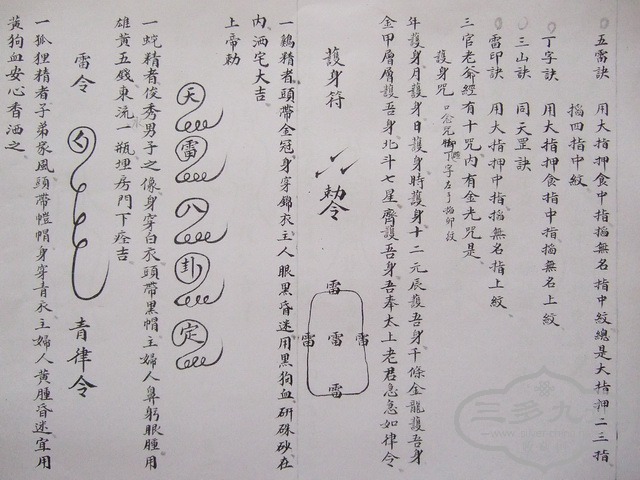 五雷訣 用大指押食中指掐無名指中紋總是大指押二三指
掐四指中紋
丁字訣 用大指押食指中指掐無名上紋
三山訣 同天罡訣
雷印訣 用大指押中指掐無名指上紋
三官老爺經有十咒內有金光咒是
護身咒 口念咒 下字左手掐卯紋
年護身月護身日護身時護身十二元辰護吾身千條金龍護吾身
金甲層層護吾身北斗七星齊護吾身吾奉太上老君急急如律令
護身符 敕令 雷 雷 雷 雷 雷
一鷄精者頭帶金冠身穿錦衣主人眼黑昏迷用黑狗血研硃砂在
內洒宅大吉
上帝勅
天雷八卦定
一蛇精者俊秀男子之像身穿白衣頭帶黑帽主婦人鼻躬眼腫用
雄黃五錢東流一瓶埋房門下痊吉
雷令 青律令
一狐狸精者子弟家風頭帶帽身穿青衣主婦人黃腫昏迷宜用
黃狗血安心香洒之
三多九